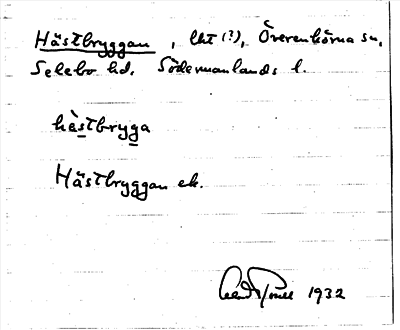 Hästbryggan, lht (?), Överenhörna sn,
Selebo hd. Södermanlands l.
hästbryga
Hästbryggan ek.
1932